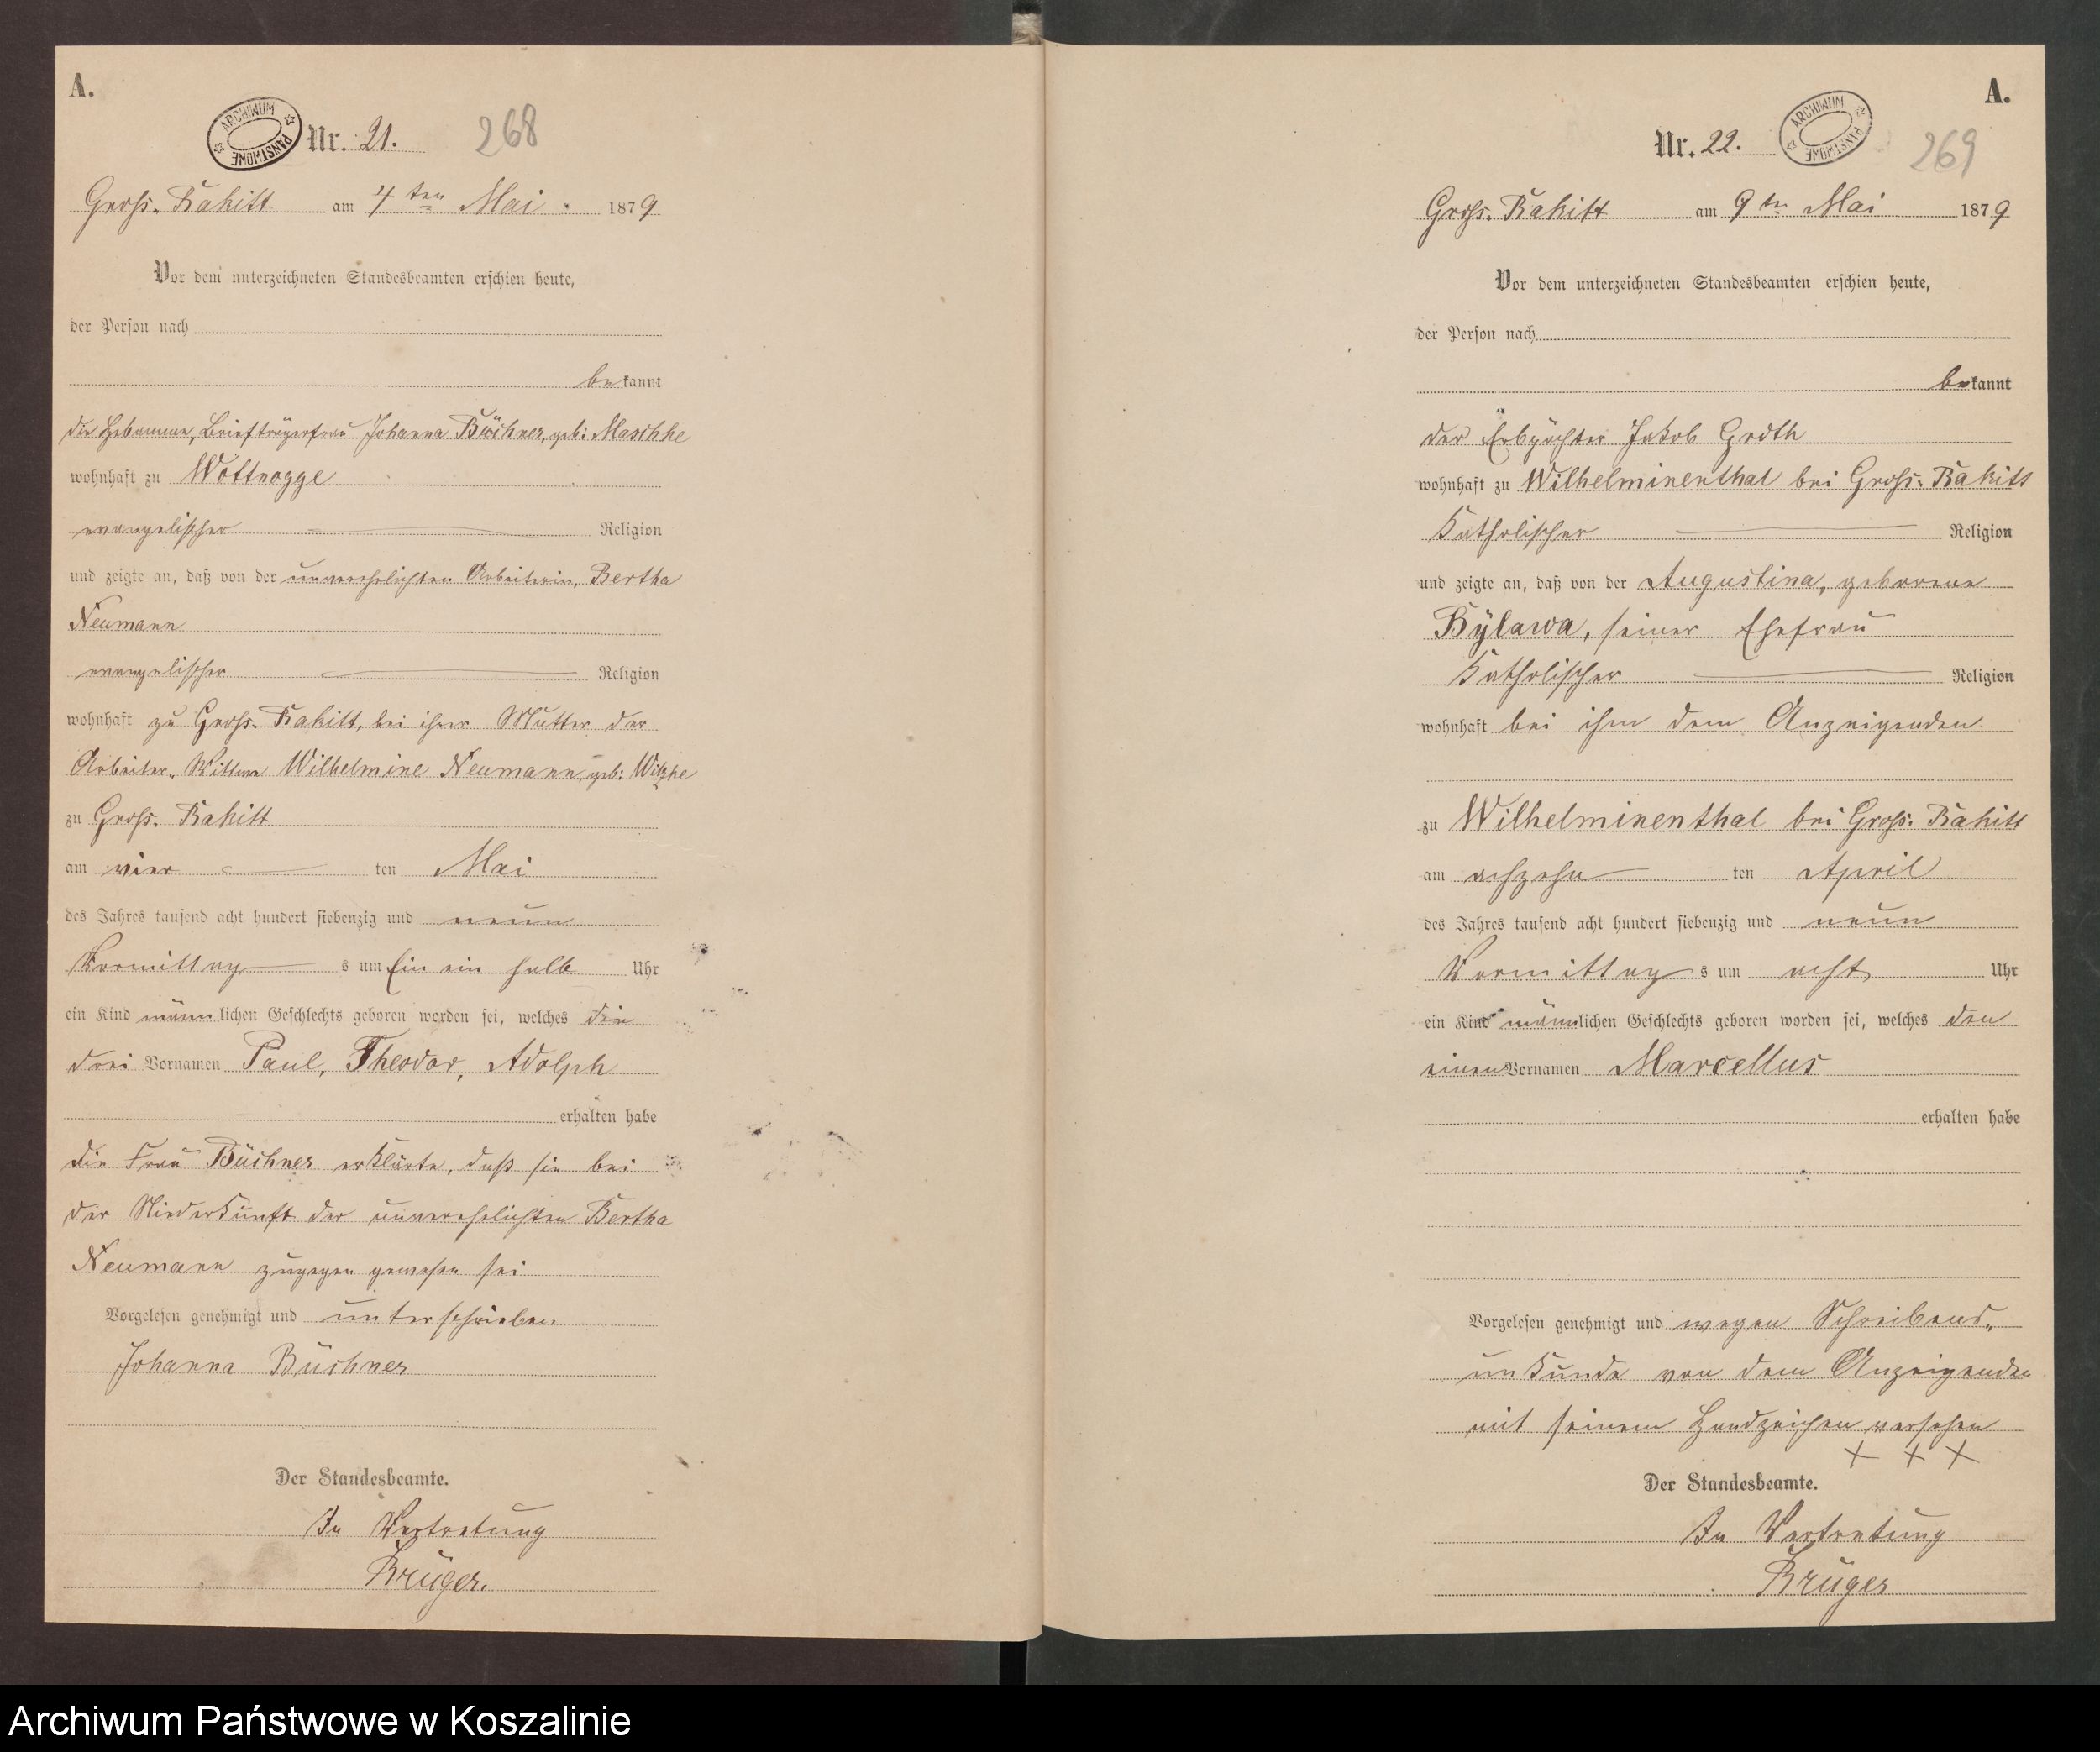 A.
ARCHIWUM PAŃSTWOWE
Nr. 21.
268
Gross-Rakitt am 4ten Mai 1879
Vor dem unterzeichneten Standesbeamten erschien heute,
der Person nach
bekannt
die Hebamme, Briefträgerfrau Johanna Büchner, geb: Maschke
wohnhaft zu Wottnogge
evangelischer Religion
und zeigte an, daß von der unverehelichten Arbeiterin, Bertha
Neumann
evangelischer Religion
wohnhaft zu Gross-Rakitt, bei ihrer Mutter der
Arbeiter-Wittwe Wilhelmine Neumann, geb:
zu Gross-Rakitt
am vier ten Mai
des Jahres tausend acht hundert siebenzig und neun
Vormittag s um Ein ein halb Uhr
ein Kind männlichen Geschlechts geboren worden sei, welches die
drei Vornamen Paul, Theodor, Adolph
erhalten habe
die Frau Büchner erklärte, daß sie bei
der Niederkunft der unverehelichten Bertha
Neumann zugegen gewesen sei
Vorgelesen genehmigt und unterschrieben
Johanna Büchner
Der Standesbeamte.
In Vertretung
Krüger.
A.
Nr. 22.
ARCHIWUM PAŃSTWOWE
269
Gross-Rakitt am 9ten Mai 1879
Vor dem unterzeichneten Standesbeamten erschien heute,
der Person nach
bekannt
der Erbpächter Jakob Groth
wohnhaft zu Wilhelminenthal bei Gross-Rakitt
Katholischer Religion
und zeigte an, daß von der Augustina, geborene
Bÿlawa, seiner Ehefrau
Katholischer Religion
wohnhaft bei ihm dem Anzeigenden
zu Wilhelminenthal bei Gross-Rakitt
am achzehn ten April
des Jahres tausend acht hundert siebenzig und neun
Vormittag s um acht Uhr
ein Kind männlichen Geschlechts geboren worden sei, welches den
einen Vornamen Marcellus
erhalten habe
Vorgelesen genehmigt und wegen Schreibens-
unkunde von dem Anzeigenden
mit seinem Handzeichen versehen
+ + +
Der Standesbeamte.
In Vertretung
Krüger
Archiwum Państwowe w Koszalinie